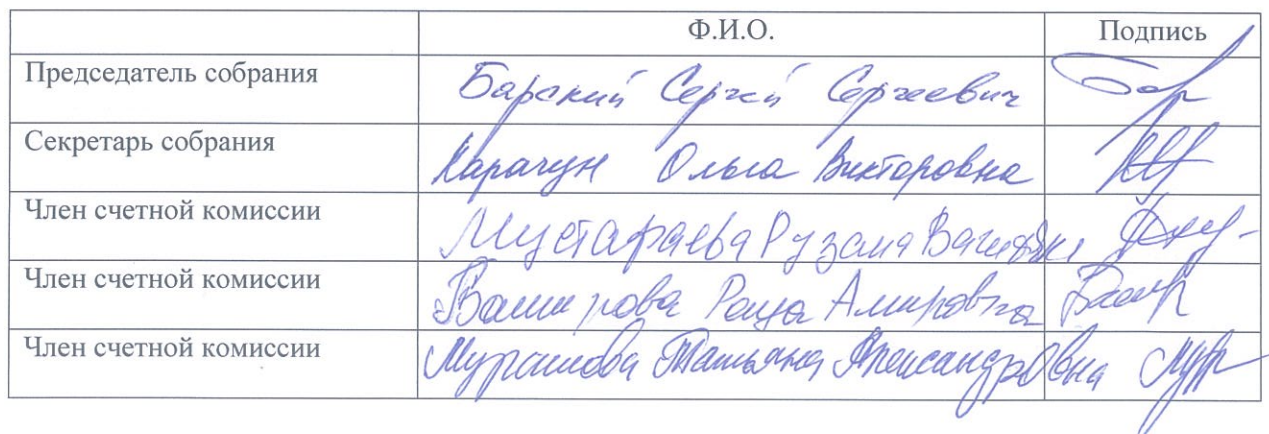 Ф.И.О. Подпись
Председатель собрания Барский Сергей Сергеевич
Секретарь собрания Карачун Ольга Викторовна
Член счетной комиссии Мустафаева
Член счетной комиссии Баширова Амировна
Член счетной комиссии Мурашова Татьяна Александровна